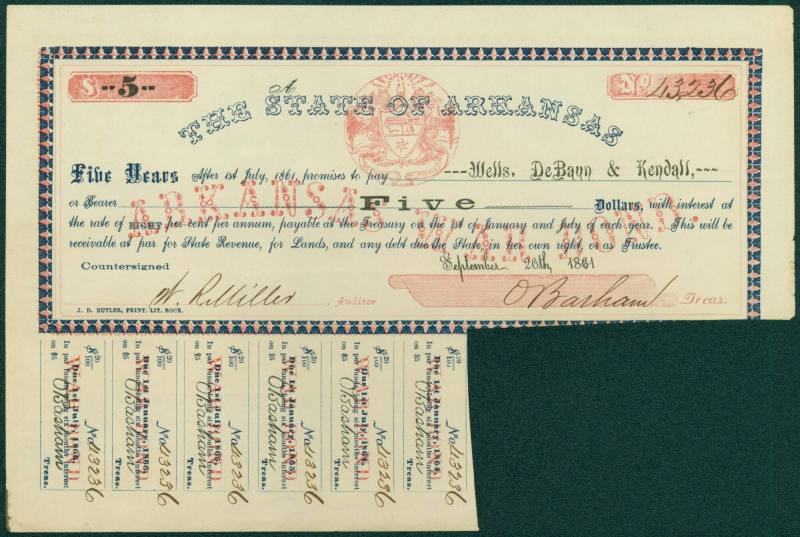 $ --5-- A No 43,236
THE STATE OF ARKANSAS
Five Years After 1st July, 1861, promises to pay ---Wells, DeBaun & Kendall,---
or Bearer Five Dollars, with interest at
the rate of EIGHT per cent per annum, payable at the Treasury on the 1st of January and July of each year. This will be
receivable at par for State Revenue, for Lands, and any debt due the State, in her own right, or as Trustee.
ARKANSAS WAR BOND.
September 20th, 1861
Countersigned
W. R. Miller Auditor O Basham Treas.
J. D. BUTLER, PRINT. LIT. ROCK.
$ 20/100 No 43236
Due 1st July, 1866,
In par funds being six months interest
on $5 O Basham Treas.
$ 20/100 No 43236
Due 1st January, 1866,
In par funds being six months interest
on $5 O Basham Treas.
$ 20/100 No 43236
Due 1st July, 1865,
In par funds being six months interest
on $5 O Basham Treas.
$ 20/100 No 43236
Due 1st January, 1865,
In par funds being six months interest
on $5 O Basham Treas.
$ 20/100 No 43236
Due 1st July, 1864,
In par funds being six months interest
on $5 O Basham Treas.
$ 20/100 No 43236
Due 1st January, 1864,
In par funds being six months interest
on $5 O Basham Treas.